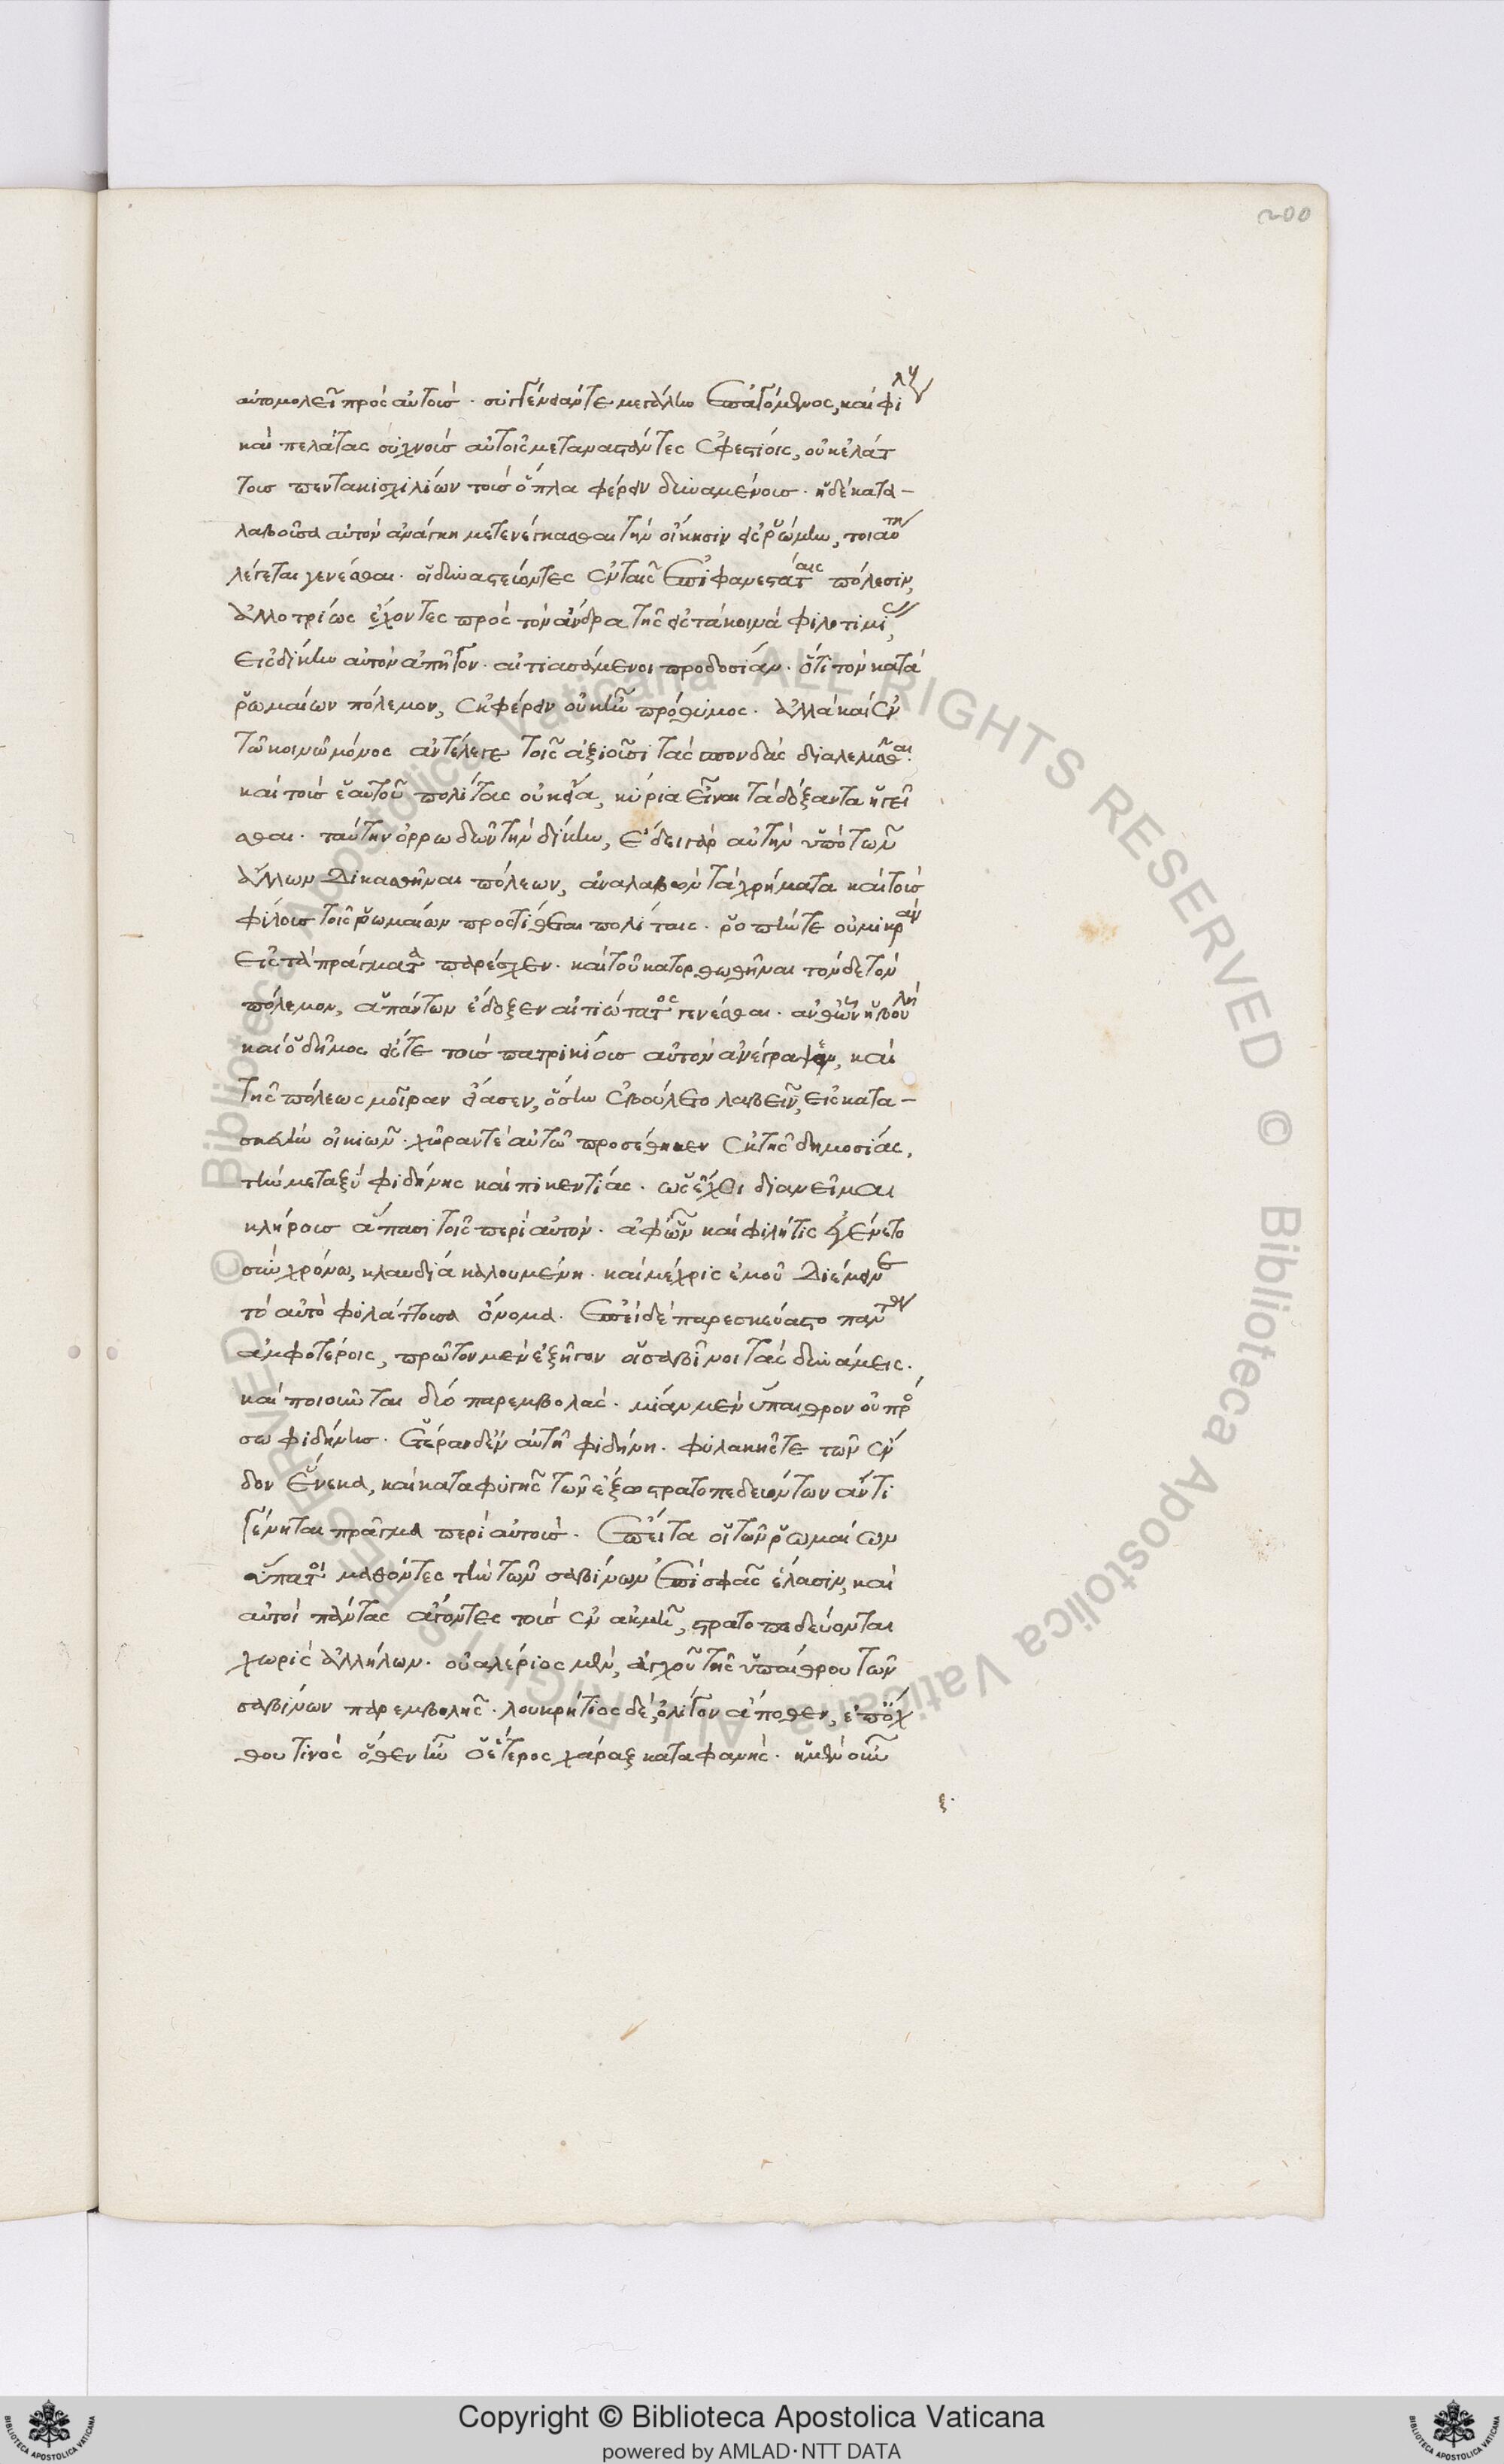 200
αὐτομολεῖ πρὸς αὐτοὺς· συγγένειάν τε μεγάλην ἐπαγόμενος, καὶ φίλους
καὶ πελάτας συχνοὺς αὐτοῖς μεταναστάντες ἐφεστίοις, οὐκ ἐλάτ
τους πεντακισχιλίων τοὺς ὅπλα φέρειν δυναμένους· ἡ δὲ κατα-
λαβοῦσα αὐτὸν ἀνάγκη μετενέγκασθαι τὴν οἴκησιν εἰς ῥώμην, τοιαύτη
λέγεται γενέσθαι· οἱ δυναστεύοντες ἐν ταῖς ἐπιφανεστάταις πόλεσιν,
ἀλλοτρίως ἔχοντες πρὸς τὸν ἄνδρα τῆς εἰς τὰ κοινὰ φιλοτιμίας,
εἰς δίκην αὐτὸν ἀπῆγον· αἰτιασάμενοι προδοσίαν· ὅτι τὸν κατὰ
ῥωμαίων πόλεμον, ἐκφέρειν οὐκ ἦν πρόθυμος· ἀλλὰ καὶ ἐν
τῷ κοινῷ μόνος ἀντέλεγε τοῖς ἀξιοῦσι τὰς σπονδὰς διαλελύσθαι·
καὶ τοὺς ἑαυτοῦ πολίτας οὐκ εἴα, κύρια εἶναι τὰ δόξαντα ἡγεῖ
σθαι· ταύτην ὀρρωδῶν τὴν δίκην, ἔδει γὰρ αὐτὴν ὑπὸ τῶν
ἄλλων δικασθῆναι πόλεων, ἀναλαβὼν τὰ χρήματα καὶ τοὺς
φίλους τοῖς ῥωμαίων προστίθεται πολίταις· ῥοπήν τε οὐ μικρὰν
εἰς τὰ πράγματα παρέσχεν· καὶ τοῦ κατορθωθῆναι τόνδε τὸν
πόλεμον, ἁπάντων ἔδοξεν αἰτιώτατος γενέσθαι· ἀνθ' ὧν ἡ βουλὴ
καὶ ὁ δῆμος εἴς τε τοὺς πατρικίους αὐτὸν ἀνέγραψεν, καὶ
τῆς πόλεως μοῖραν εἴασεν, ὅσην ἐβούλετο λαβεῖν, εἰς κατα-
σκευὴν οἰκιῶν· χώραν τε αὐτῷ προσέθηκεν ἐκ τῆς δημοσίας,
τὴν μεταξὺ φιδήνης καὶ πικεντίας· ὡς ἔχοι διανεῖμαι
κλήρους ἅπασι τοῖς περὶ αὐτόν· ἀφ' ὧν καὶ φιλή τις ἐγένετο
σὺν χρόνῳ, κλαυδία καλουμένη· καὶ μέχρις ἐμοῦ διέμεινε
τὸ αὐτὸ φυλάττουσα ὄνομα· ἐπεὶ δὲ παρεσκεύαστο πάντα
ἀμφοτέροις, πρῶτον μὲν ἐξῆγον οἱ σαβῖνοι τὰς δυνάμεις·
καὶ ποιοῦνται δύο παρεμβολάς· μίαν μὲν ὕπαιθρον οὐ πρό
σω φιδήνης· ἑτέραν δ' ἐν αὐτῇ φιδήνῃ· φυλακῆς τε τῶν ἔν
δον ἕνεκα, καὶ καταφυγῆς τῶν ἔξω στρατοπεδευόντων ἄν τι
γένηται πρᾶγμα περὶ αὐτούς· ἔπειτα οἱ τῶν ῥωμαίων
ὕπατοι μαθόντες τὴν τῶν σαβίνων ἐπὶ σφᾶς ἔλασιν, καὶ
αὐτοὶ πάντας ἄγοντες τοὺς ἐν ἀκμῇ, στρατοπεδεύονται
χωρὶς ἀλλήλων· οὐαλέριος μὲν, ἀγχοῦ τῆς ὑπαίθρου τῶν
σαβίνων παρεμβολῆς· λουκρήτιος δὲ, ὀλίγον ἄποθεν, ἐπ' ὄχ
θου τινὸς ὅθεν ἦν ὁ ἕτερος χάραξ καταφανής· ἡ μὲν οὖν
ξ·
Copyright © Biblioteca Apostolica Vaticana
powered by AMLAD·NTT DATA